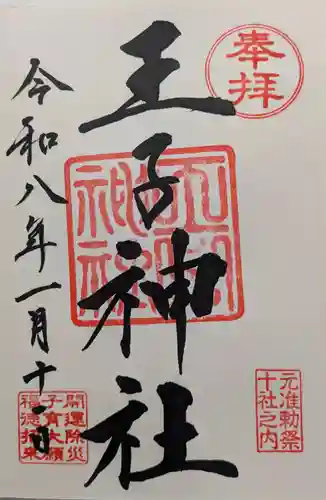 奉拝
王子神社
令和八年一月十一日
王子神社
元准勅祭
十社之内
開運除災
子育大願
福徳招来